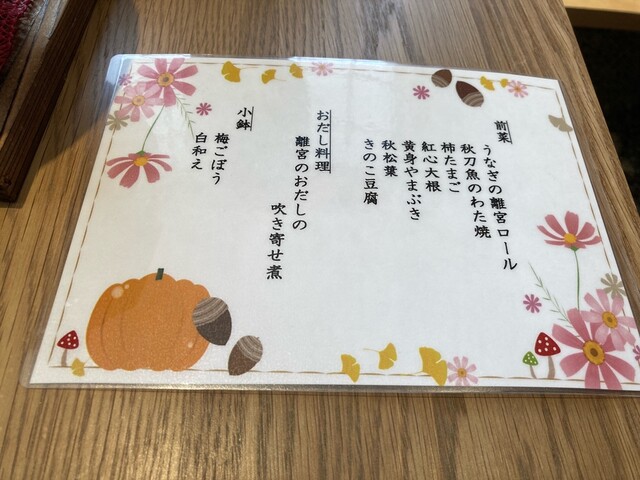 前菜
うなぎの離宮ロール
秋刀魚のわた焼
柿たまご
紅心大根
黄身やまぶき
秋松葉
きのこ豆腐
おだし料理
離宮のおだしの
吹き寄せ煮
小鉢
梅ごぼう
白和え